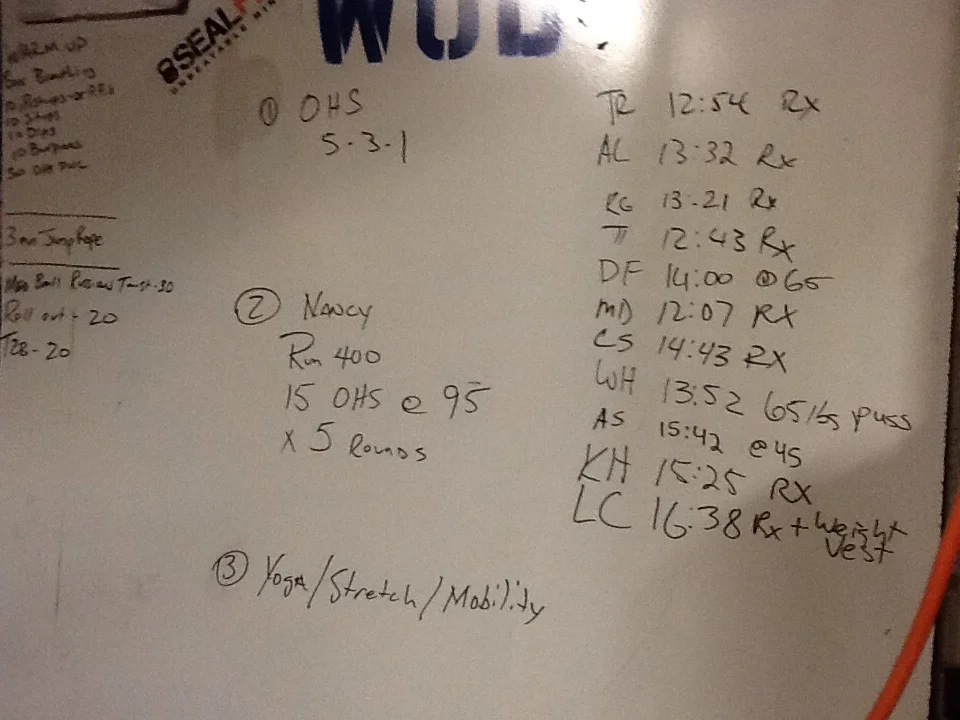 WOD
SEALF
UNBEATABLE MIN
WARM UP
10 Dips
10 Burpees
3 min Jump Rope
Med Ball Russian Twist-30
Roll out - 20
T2B - 20
① OHS
5-3-1
② NANCY
Run 400
15 OHS @ 95
x 5 Rounds
③ Yoga/Stretch/Mobility
TR 12:54 Rx
AL 13:32 Rx
KG 13:21 Rx
TI 12:43 Rx
DF 14:00 @65
MD 12:07 RX
CS 14:43 RX
WH 13:52 65lbs puss
AS 15:42 @45
KH 15:25 RX
LC 16:38 Rx + Weight
Vest